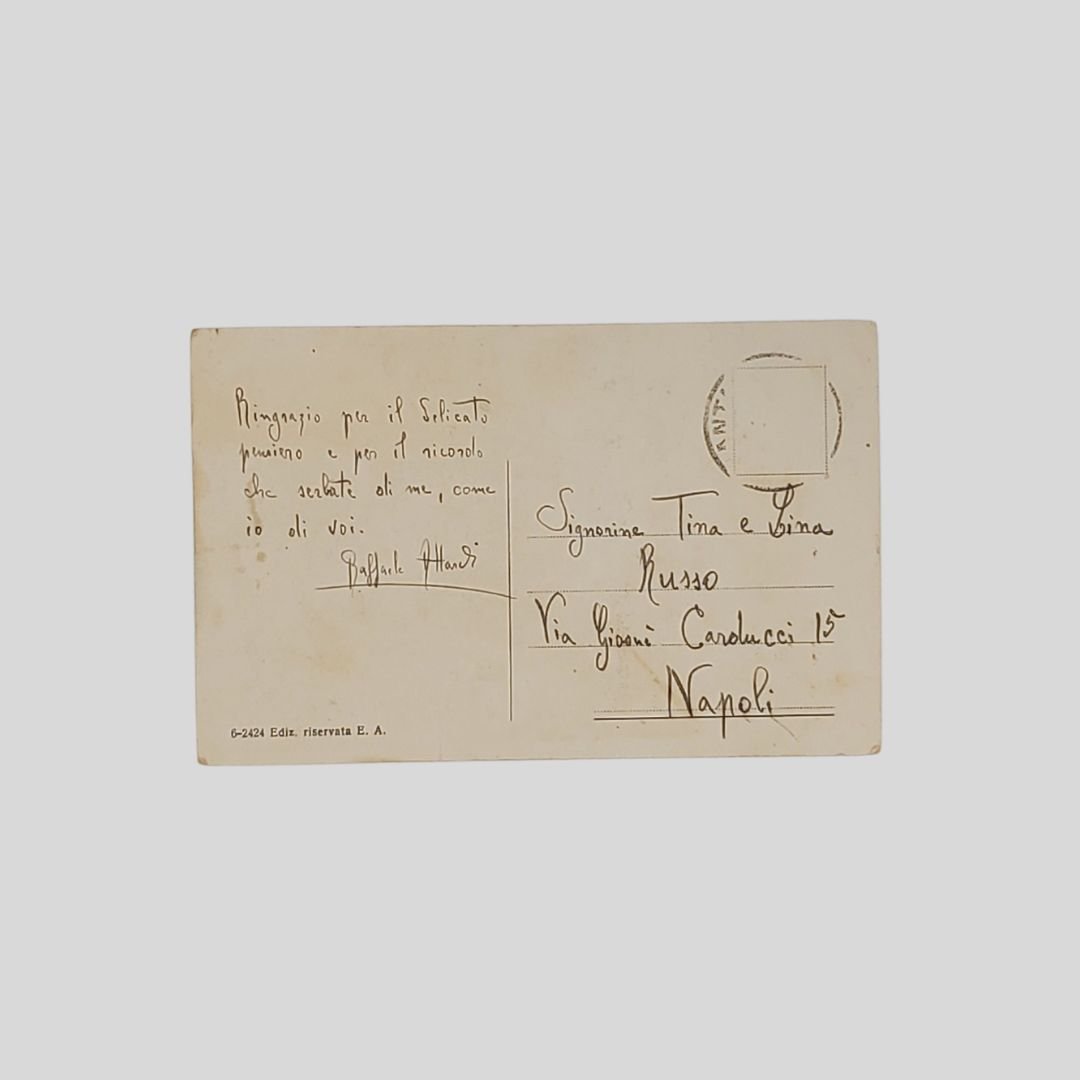 Ringrazio per il delicato
pensiero e per il ricordo
che serbate di me, come
io di voi.
Raffaele
6-2424 Ediz. riservata E. A.
Signorine Tina e Lina
Russo
Via Giosuè Carducci 15
Napoli